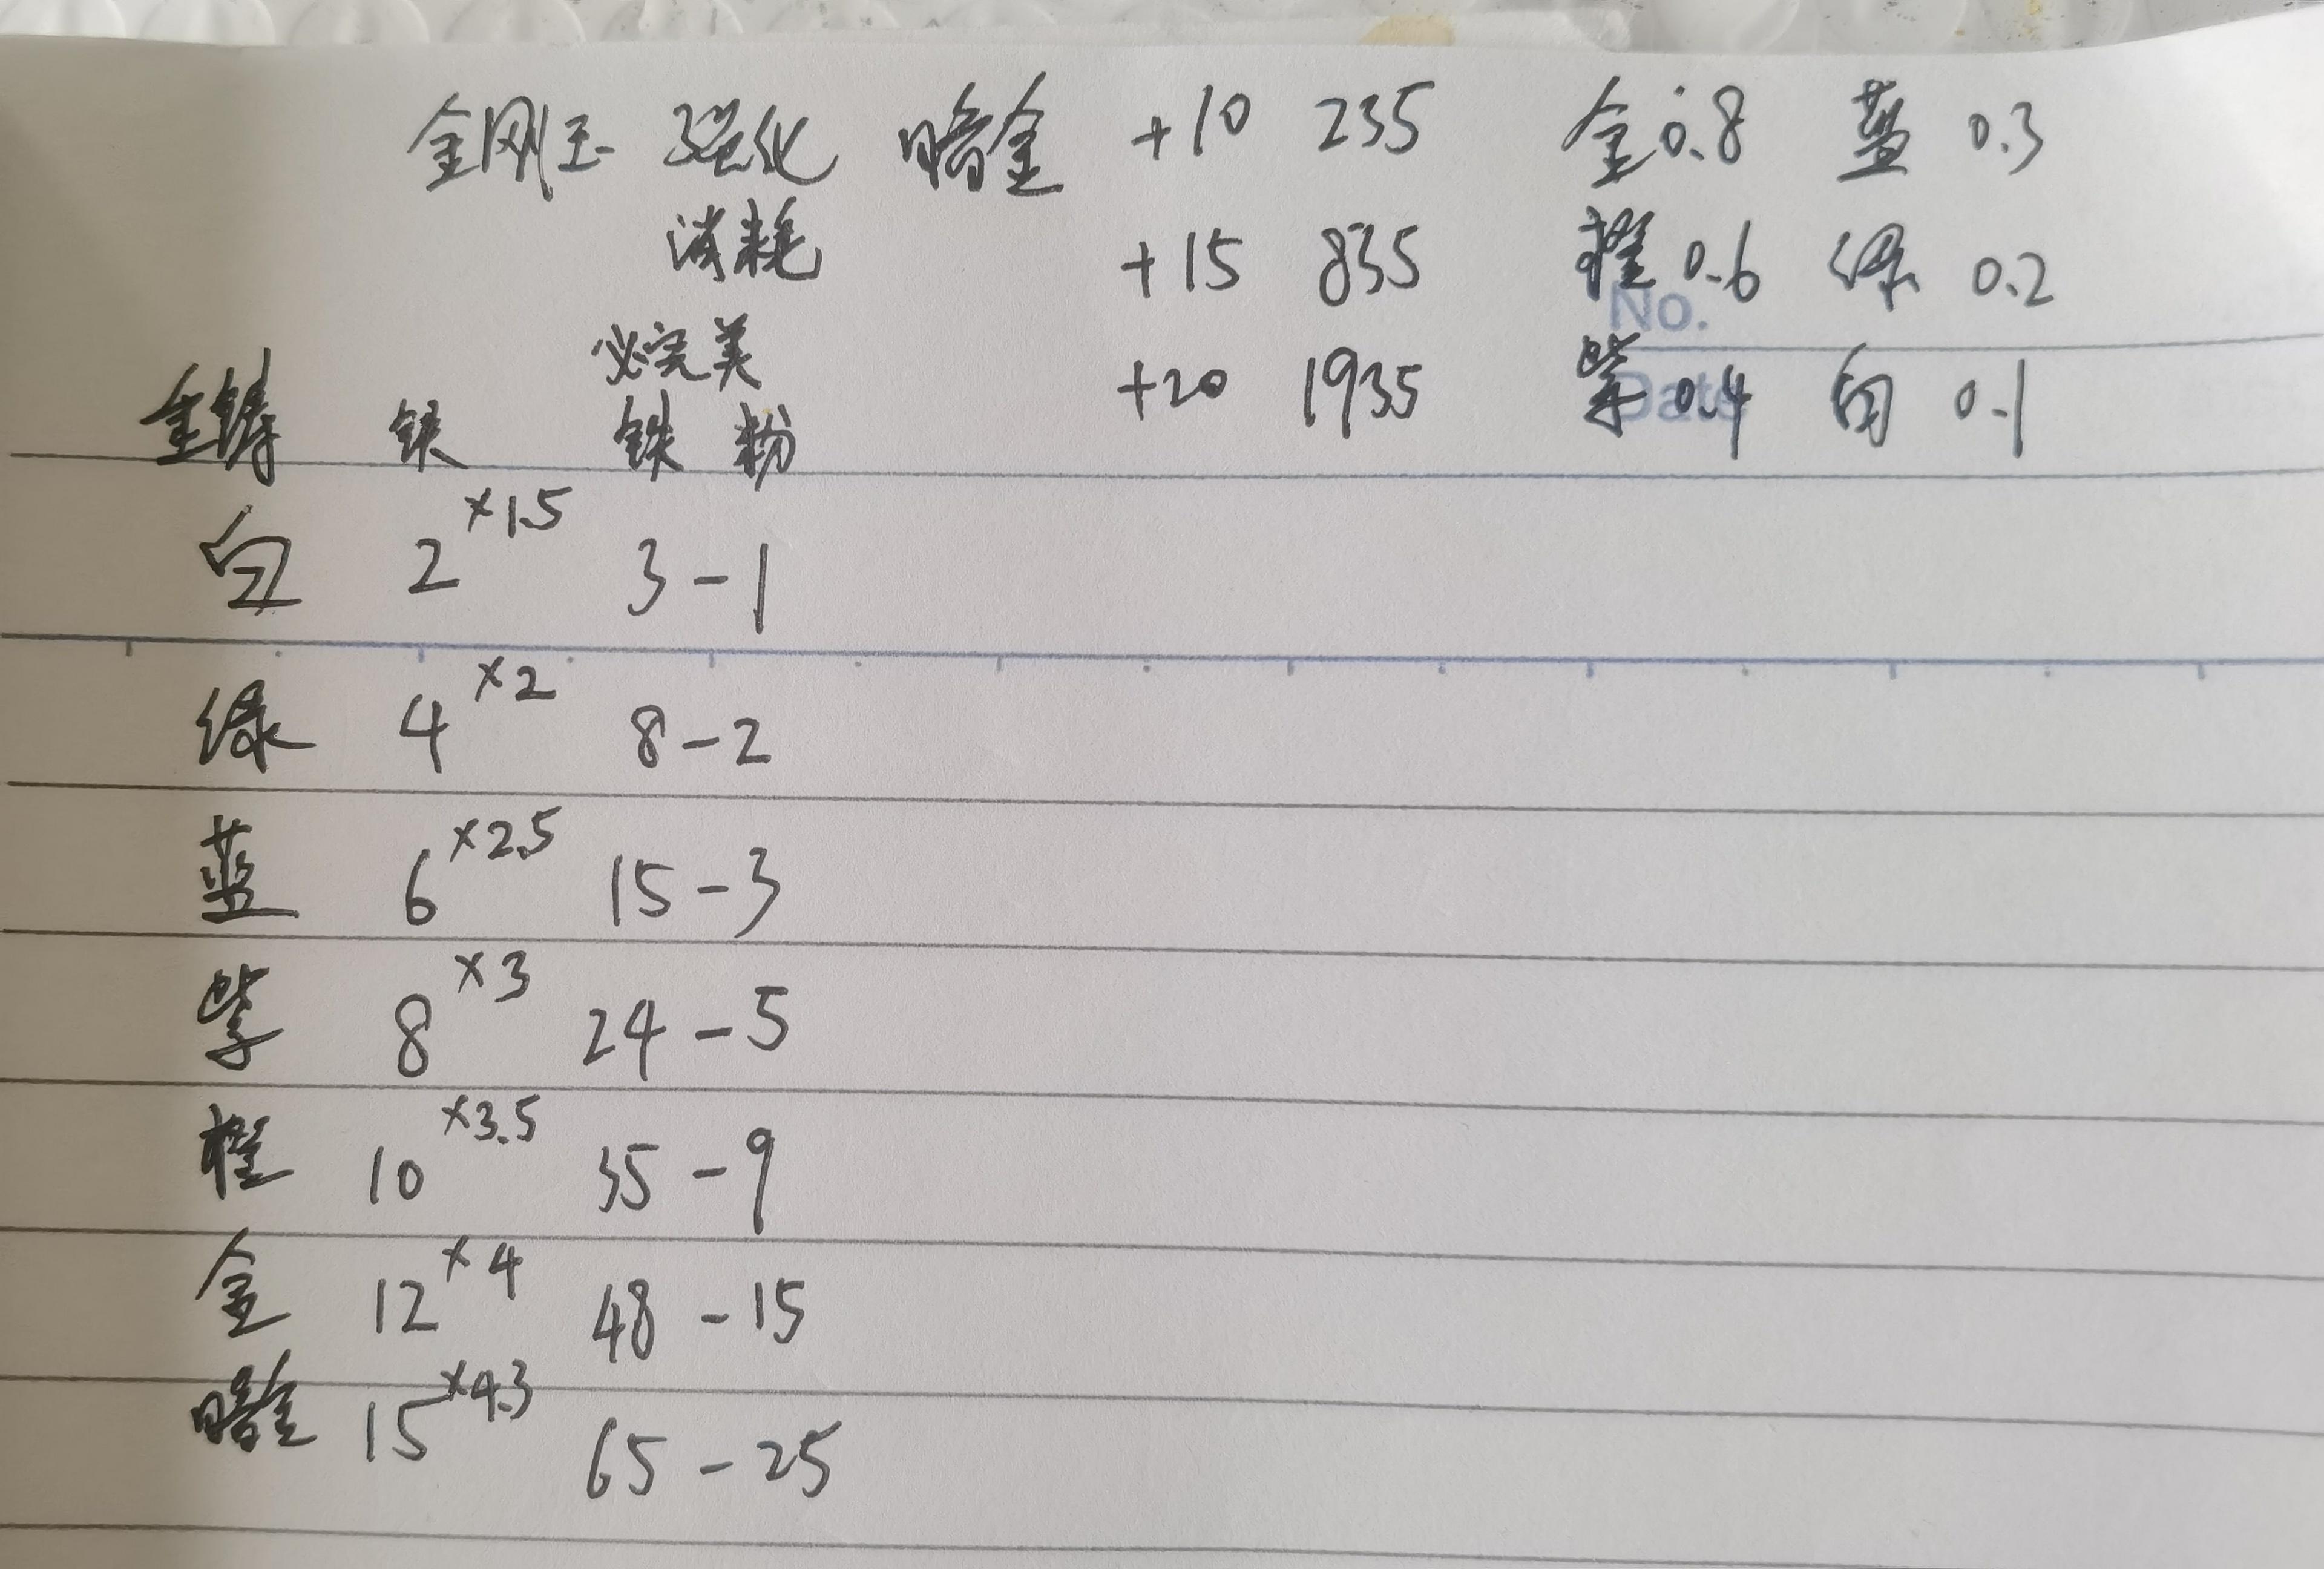 金刚玉 强化 暗金 +10 235 金 0.8 蓝 0.3
消耗 +15 835 橙 0.6 绿 0.2
No.
必完美 +20 1935 紫 0.4 白 0.1
Date
重铸 铁 铁 粉
白 2 ×1.5 3-1
绿 4 ×2 8-2
蓝 6 ×2.5 15-3
紫 8 ×3 24-5
橙 10 ×3.5 35-9
金 12 ×4 48-15
暗金 15 ×4.3 65-25